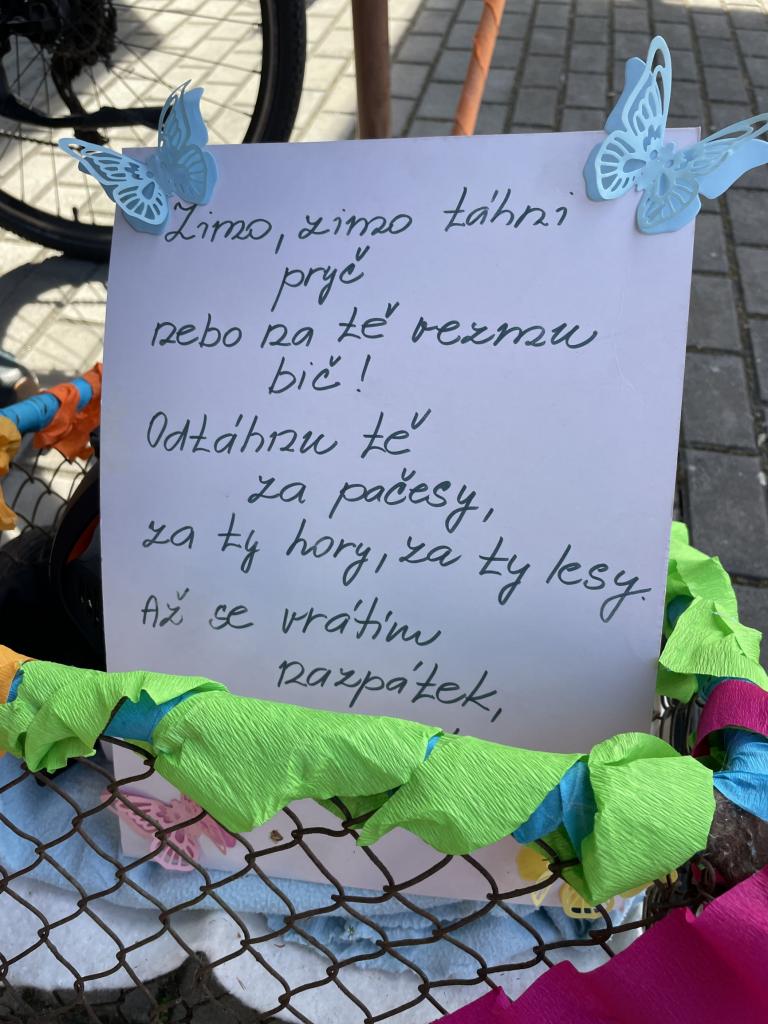 Zimo, zimo táhni
pryč
nebo na tě vezmu
bič!
Odtáhnu tě
za pačesy,
za ty hory, za ty lesy.
Až se vrátím
nazpátek,